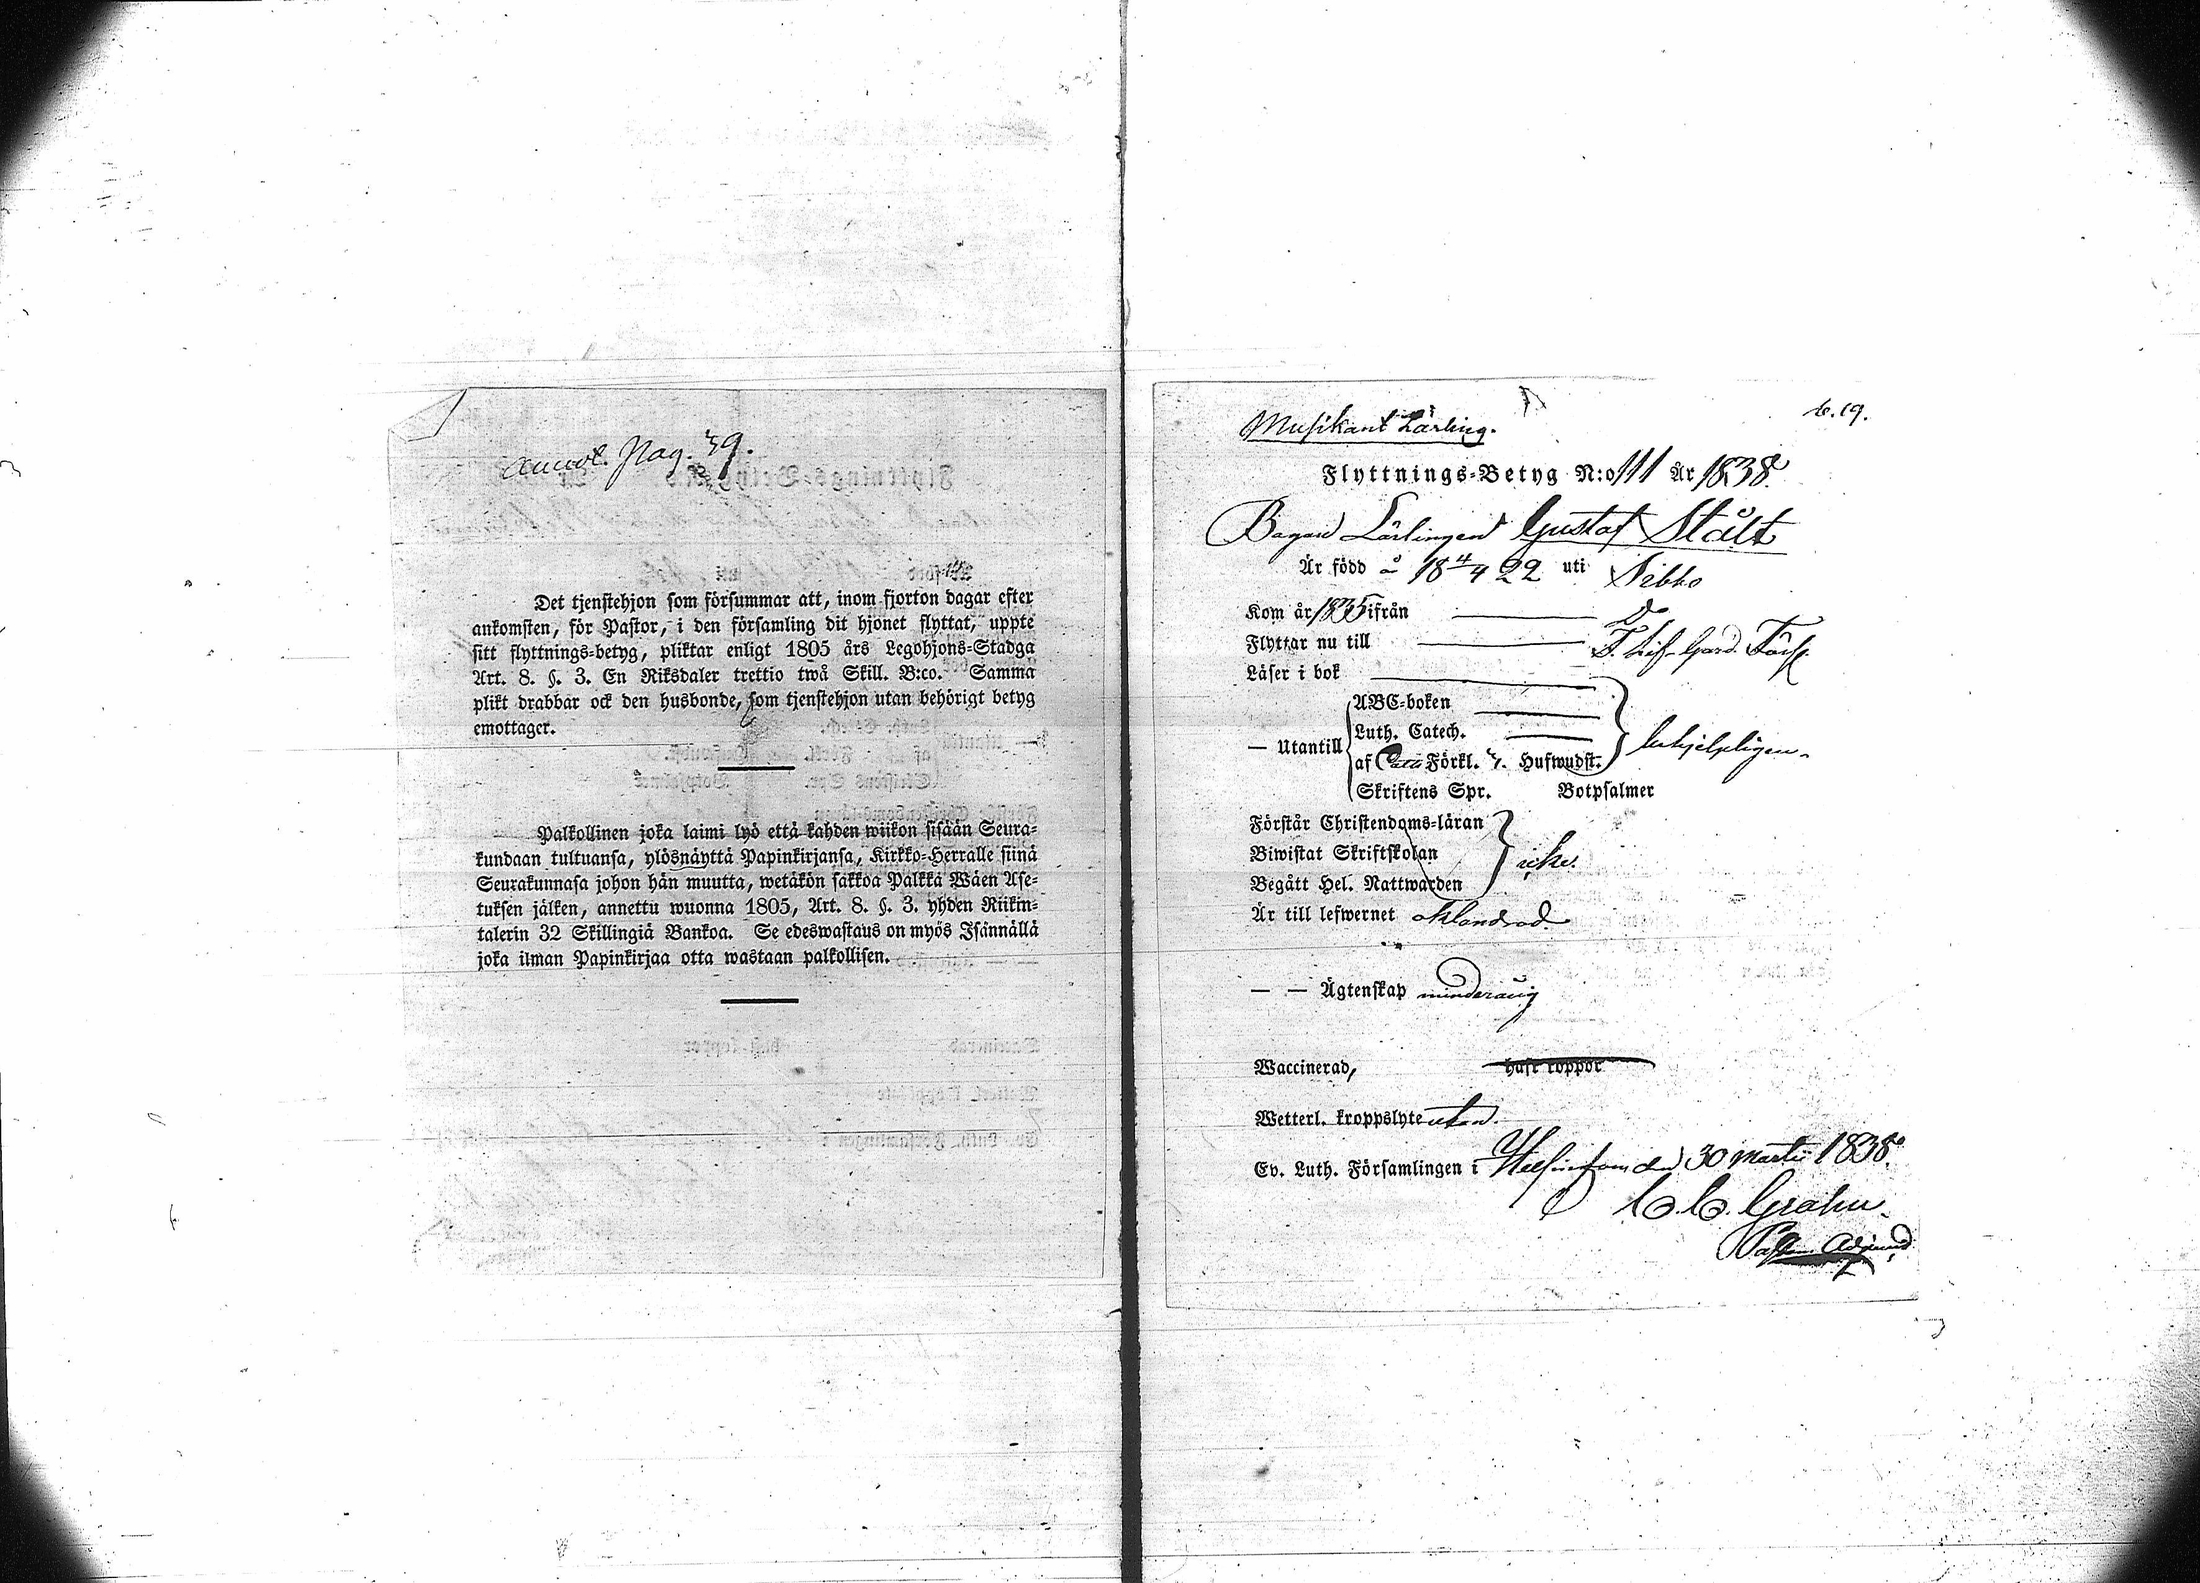 Annot. Pag. 39.
Det tjenstehjon som försummar att, inom fjorton dagar efter
ankomsten, för Pastor, i den församling dit hjonet flyttat, uppte
sitt flyttnings-betyg, pliktar enligt 1805 års Legohjons-Stadga
Art. 8. §. 3. En Riksdaler trettio twå Skill. B:co. Samma
plikt drabbar ock den husbonde, som tjenstehjon utan behörigt betyg
emottager.
Palkollinen joka laimi lyö että kahden wiikon sisään Seura-
kundaan tultuansa, ylösnäyttä Papinkirjansa, Kirkko-Herralle siinä
Seurakunnasa johon hän muutta, wetäkön sakkoa Palkka Wäen Ase-
tuksen jälken, annettu wuonna 1805, Art. 8. §. 3. yhden Riikin-
talerin 32 Skillingiä Bankoa. Se edeswastaus on myös Isännällä
joka ilman Papinkirjaa otta wastaan palkollisen.
Musikant Lärling.
Flyttnings-Betyg N:o 111 År 1838.
Bagare Lärlingen Gustaf Stålt
Är född å 18 4/4 22 uti Sibbo
Kom år 1835 ifrån Do
Flyttar nu till F. Lif-Gard. Förs.
Läser i bok
ABC-boken
Luth. Catech.
— Utantill
af Förkl. Hufwudst.
Skriftens Spr. Botpsalmer
behjelpligen.
Förstår Christendoms-läran
Biwistat Skriftskolan
icke.
Begått Hel. Nattwarden
Är till lefwernet oklandrad.
— — Ägtenskap minderårig
Waccinerad, haft koppor
Wetterl. kroppslyte utan.
Ev. Luth. Församlingen i Helsingfors den 30 Martii 1838.
C. C. Grahn.
Past. Adjunct